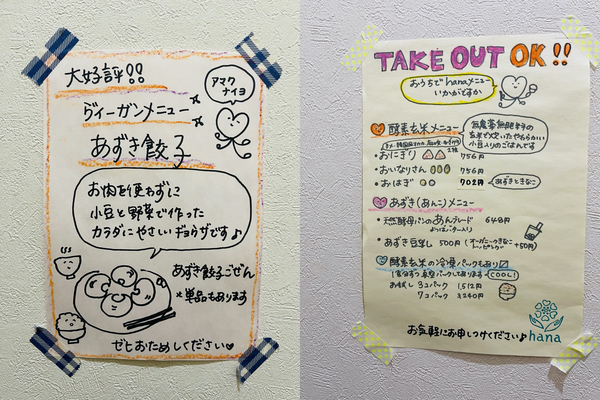 大好評!!
アマク
ナイヨ
ヴィーガンメニュー
あずき餃子
お肉を使わずに
小豆と野菜で作った
カラダにやさしいギョウザです♪
あずき餃子ごぜん
*単品もあります
ぜひおためしください♡
TAKE OUT OK!!
おうちでhanaメニュー
いかがですか
酵素玄米メニュー
無農薬無肥料の
玄米で炊いたやわらかい
小豆入りのごはんです
・おにぎり 2種 756円
・おいなりさん 756円
・おはぎ 702円 あずきときなこ
あずき(あんこ)メニュー
・天然酵母パンのあんブレード 648円
・あずき豆寒し 500円 (オーガニックきなこ +50円)
酵素玄米の冷凍パックもあり
1食分ずつ真空パックしてあります COOL!
お試し 3コパック 1,512円
7コパック 3,240円
お気軽にお申しつけください♪
hana